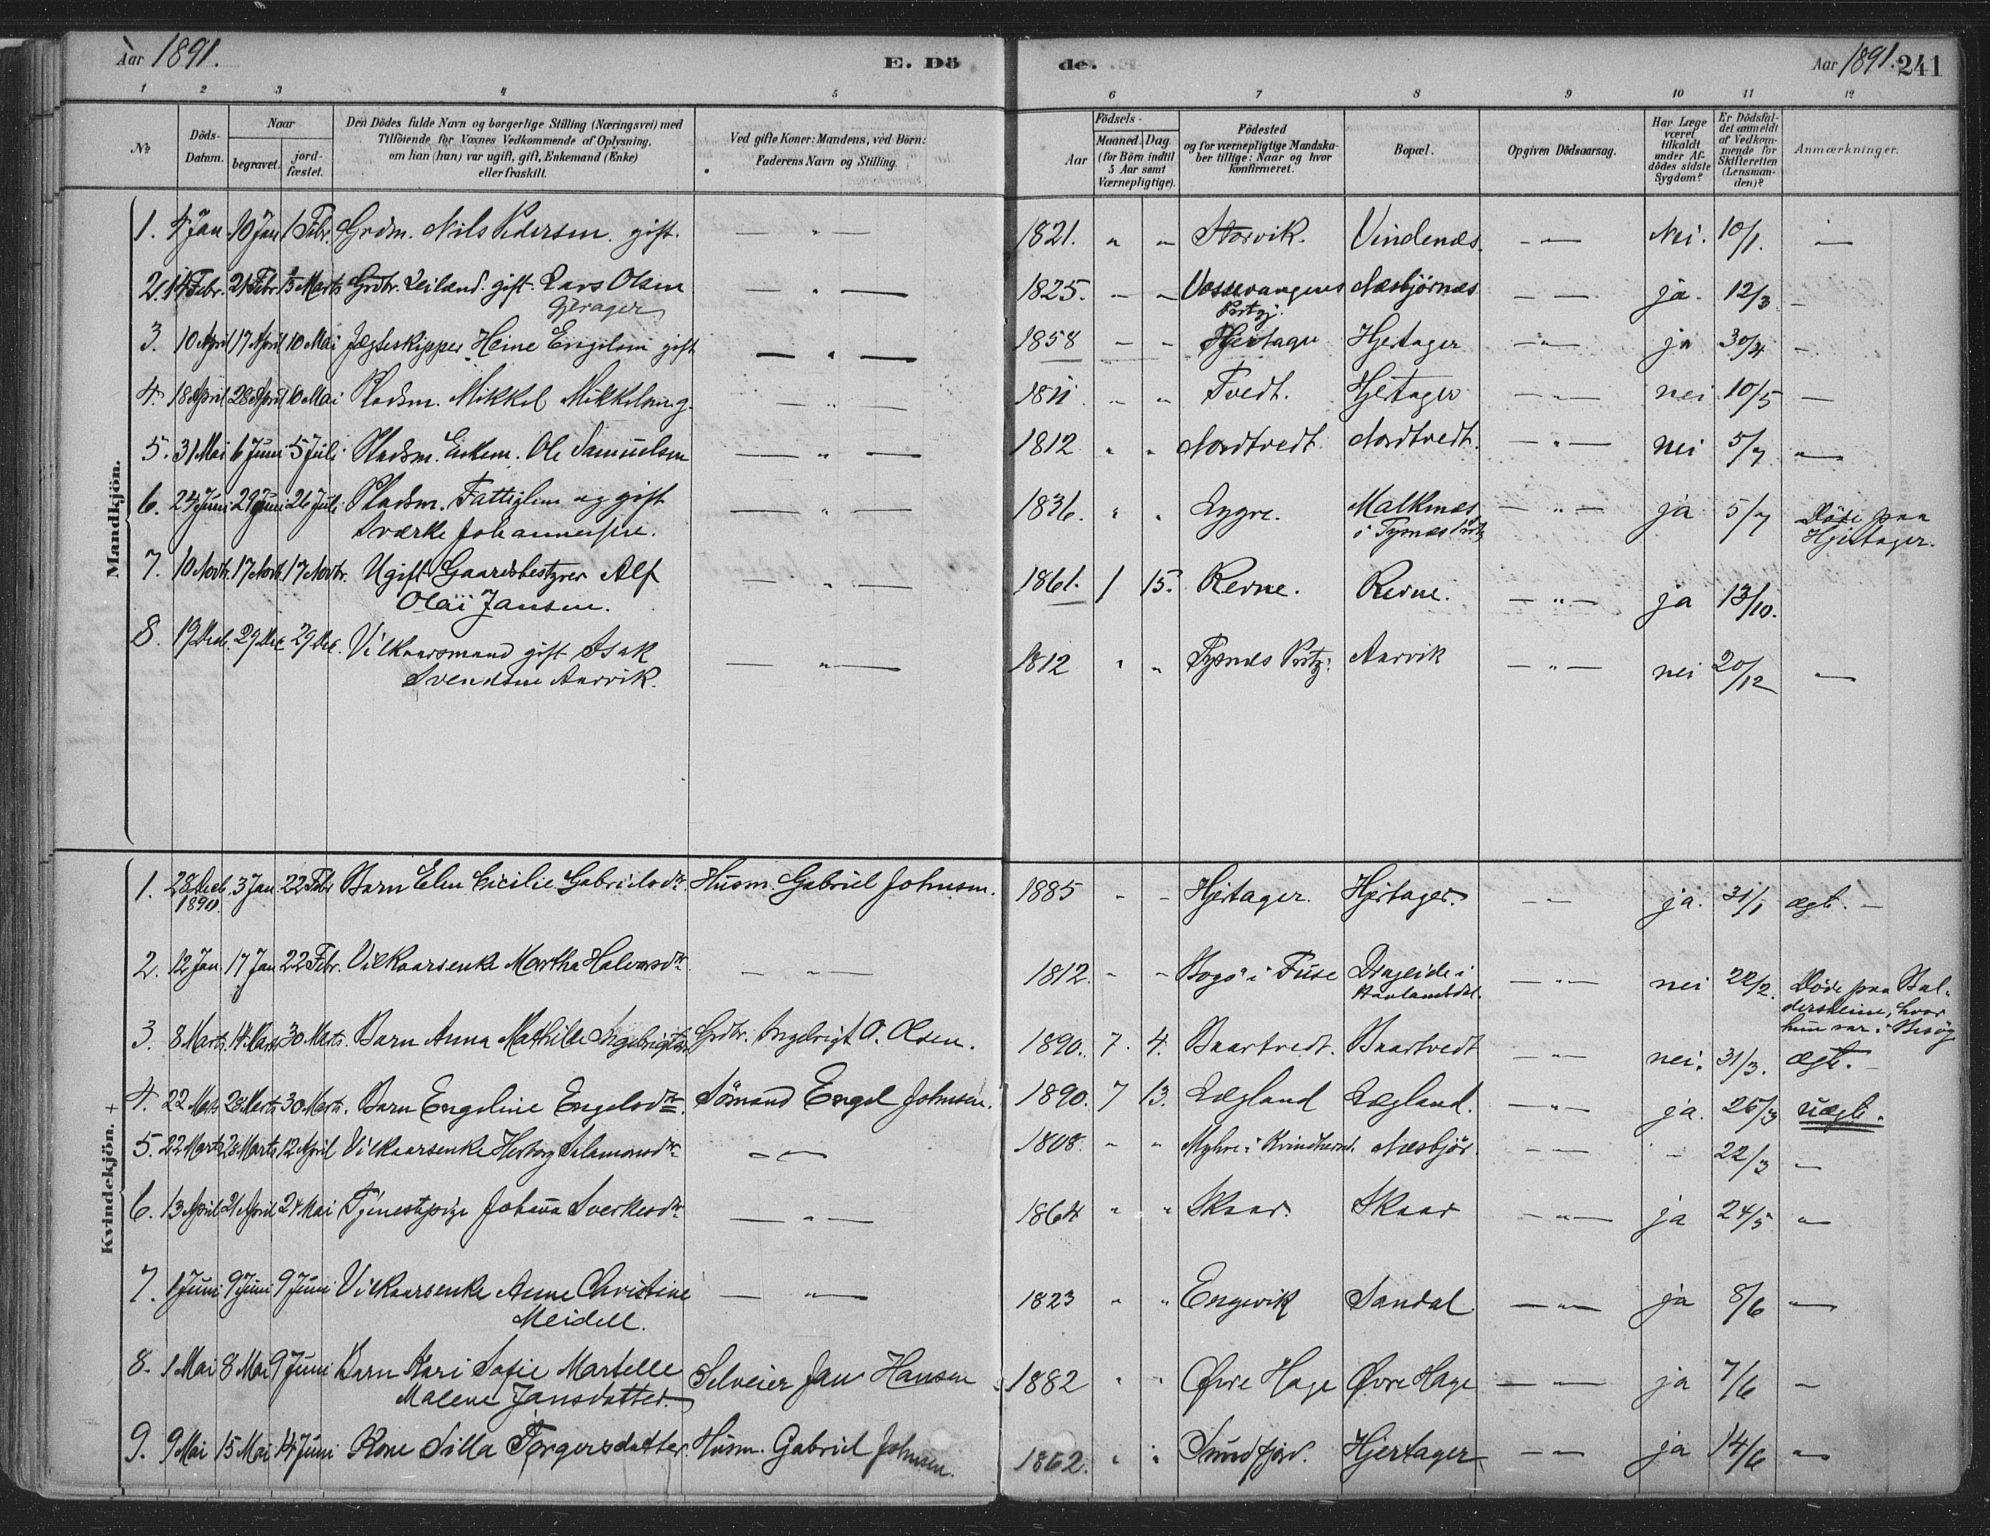 Aar 1891.
E. Döde.
Aar 1891. 241
1 2 3 4 5 6 7 8 9 10 11 12
No
Döds-Datum.
Naar
begravet.
jordfæstet.
Den Dödes fulde Navn og borgerlige Stilling (Næringsvei) med
Tilföiende for Voxnes Vedkommende af Oplysning,
om han (hun) var ugift, gift, Enkemand (Enke)
eller fraskilt.
Ved gifte Koner: Mandens, ved Börn:
Faderens Navn og Stilling.
Födsels-
Aar
Maaned. Dag.
(for Börn indtil
5 Aar samt
Værnepligtige).
Födested
og for værnepligtige Mandska-
ber tillige: Naar og hvor
konfirmeret.
Bopæl.
Opgiven Dödsaarsag.
Har Læge
været
tilkaldt
under Af-
dödes sidste
Sygdom?
Er Dödsfal-
det anmeldt
af Vedkom-
mende for
Skifteretten
(Lensman-
den)?
Anmærkninger.
Mandkjön.
1. 4 Jan 10 Jan 1 Febr. Grdm. Nils Pedersen. gift. — " — 1821. " " Storvik. Vindenæs. — " — Nei. 10/1. —
2. 14 Febr. 21 Febr. 15 Marts Grdbr. Leilænd. gift. Lars Olsen — " — 1825. — — Vossevangens Næsbjörnæs — " — ja. 12/3 —
Gjerager Prtgj.
3. 10 April 17 April 10 Mai Jægteskipper Heine Engelsen gift — " — 1858 — — Hjertager Hjertager — " — ja 30/4 —
4. 18 April 28 April 10 Mai Pladsm. Mikkel Mikkelsen g. — " — 1811 " " Tvedt. Hjertager — " — nei 10/5 —
5. 31 Mai 6 Juni 5 Juli Pladsm. Enkem. Ole Samuelsen — " — 1812 " " Nordtvedt. Nordtvedt. — " — nei 5/7 — " —
6. 24 Juni 29 Juni 26 Juli Pladsm. Fattiglem og gift — " — 1836. " " Lygre. Malkenæs — " — ja 5/7 Döde paa
Sværke Johannessen. i Tysnæs Prtgj Hjertager.
7. 10 Novbr. 17 Novbr. 17 Novbr. Ugift Gaardsbestyrer Alf — " — 1861. 1 15. Revne. Revne. — " — ja 13/10.
Olai Jansen.
8. 19 Decb. 29 Dec 29 Dec. Vilkaarsmand gift Isak — " — 1812 " " Tysnæs Prtgj. Aarvik — " — nei 20/12 — " —
Svendsen Aarvik.
Kvindekjön. +
1. 28 Decb. 3 Jan 22 Febr Barn Elen Cicilie Gabrielsdtr. Husm. Gabriel Johnsen. 1885 — — Hjertager. Hjertager. ja. 31/1 ægte. —
1890
2. 12 Jan. 17 Jan 22 Febr. Vilkaarsenke Martha Halvorsdtr. — " — 1812. — — i Fuse Drageide i — " — nei 22/2. Döde paa Bal-
dersheim, hvor
hun var i Besög
3. 8 Marts 14 Marts 30 Marts. Barn Anna Mathilde Ingebrigtsdtr. Grdbr. Ingebrigt O. Olsen. 1890. 7. 4. Baartvedt. Baartvedt nei. 31/3. ægte. —
4. 22 Marts 28 Marts 30 Marts. Barn Engeline Engelsdtr. Sömand Engel Johnsen. 1890. 7 13. Lægland Lægland. — " — ja. 26/3 uægte.
5. 22 Marts 28 Marts 12 April Vilkaarsenke Herborg Salamonsdtr. — " — 1808. " " Myhre i Kvindherred. Næsbjör. — " — — 22/3 —
6. 13 April 21 April 24 Mai Tjenestepige Johanna Sverkesdtr. — " — 1864 " " Skaar. Skaar — " — ja 24/5 — " —
7. 1 Juni 9 Juni 9 Juni Vilkaarsenke Anne Christine — " — 1823 " " Engevik Sandal — " — ja 8/6 — " —
Meidell.
8. 1 Mai 8 Mai 9 Juni Barn Kari Sofie Martelle Selveier Jan Hansen 1882 " " Øvre Hage Øvre Hage — " — ja 7/6 —
Malene Jansdatter.
9. 9 Mai 15 Mai 14 Juni Kone Silla Torgersdatter. Husm. Gabriel Johnsen. 1862. " " Sundfjord. Hjertager — " — ja 14/6 — " —